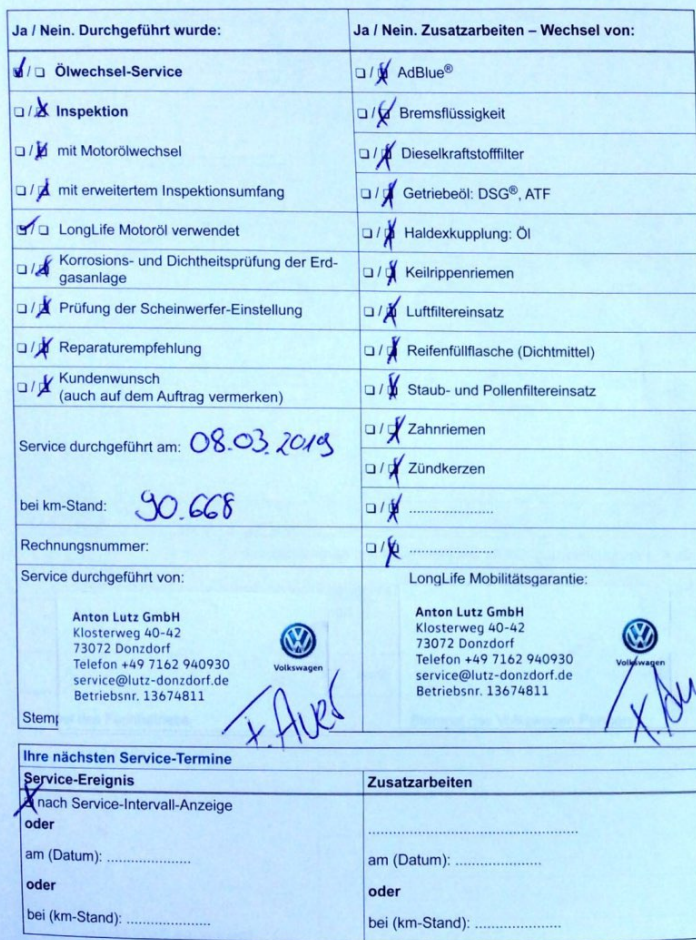 Ja / Nein. Durchgeführt wurde:
☑ / ☐ Ölwechsel-Service
☐ / ☒ Inspektion
☐ / ☒ mit Motorölwechsel
☐ / ☒ mit erweitertem Inspektionsumfang
☑ / ☐ LongLife Motoröl verwendet
☐ / ☒ Korrosions- und Dichtheitsprüfung der Erd-
gasanlage
☐ / ☒ Prüfung der Scheinwerfer-Einstellung
☐ / ☒ Reparaturempfehlung
☐ / ☒ Kundenwunsch
(auch auf dem Auftrag vermerken)
Service durchgeführt am: 08.03.2019
bei km-Stand: 90.668
Rechnungsnummer:
Service durchgeführt von:
Anton Lutz GmbH
Klosterweg 40-42
73072 Donzdorf
Telefon +49 7162 940930
service@lutz-donzdorf.de
Betriebsnr. 13674811
Volkswagen
Ja / Nein. Zusatzarbeiten – Wechsel von:
☐ / ☒ AdBlue®
☐ / ☒ Bremsflüssigkeit
☐ / ☒ Dieselkraftstofffilter
☐ / ☒ Getriebeöl: DSG®, ATF
☐ / ☒ Haldexkupplung: Öl
☐ / ☒ Keilrippenriemen
☐ / ☒ Luftfiltereinsatz
☐ / ☒ Reifenfüllflasche (Dichtmittel)
☐ / ☒ Staub- und Pollenfiltereinsatz
☐ / ☒ Zahnriemen
☐ / ☒ Zündkerzen
☐ / ☒ .....................
☐ / ☒ .....................
LongLife Mobilitätsgarantie:
Anton Lutz GmbH
Klosterweg 40-42
73072 Donzdorf
Telefon +49 7162 940930
service@lutz-donzdorf.de
Betriebsnr. 13674811
Volkswagen
Ihre nächsten Service-Termine
Service-Ereignis
☒ nach Service-Intervall-Anzeige
oder
am (Datum): .....................
oder
bei (km-Stand): .....................
Zusatzarbeiten
.....................
am (Datum): .....................
oder
bei (km-Stand): .....................